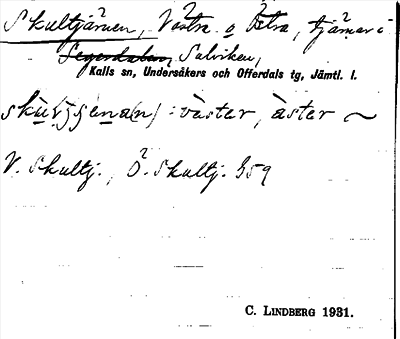 Skultjärnen, Västra o Östra, tjärnar i
Segerdalen, Salviken,
Kalls sn, Undersåkers och Offerdals tg, Jämtl. l.
: väster, åster ~
V. Skultj., Ö. Skultj. G59
C. LINDBERG 1931.